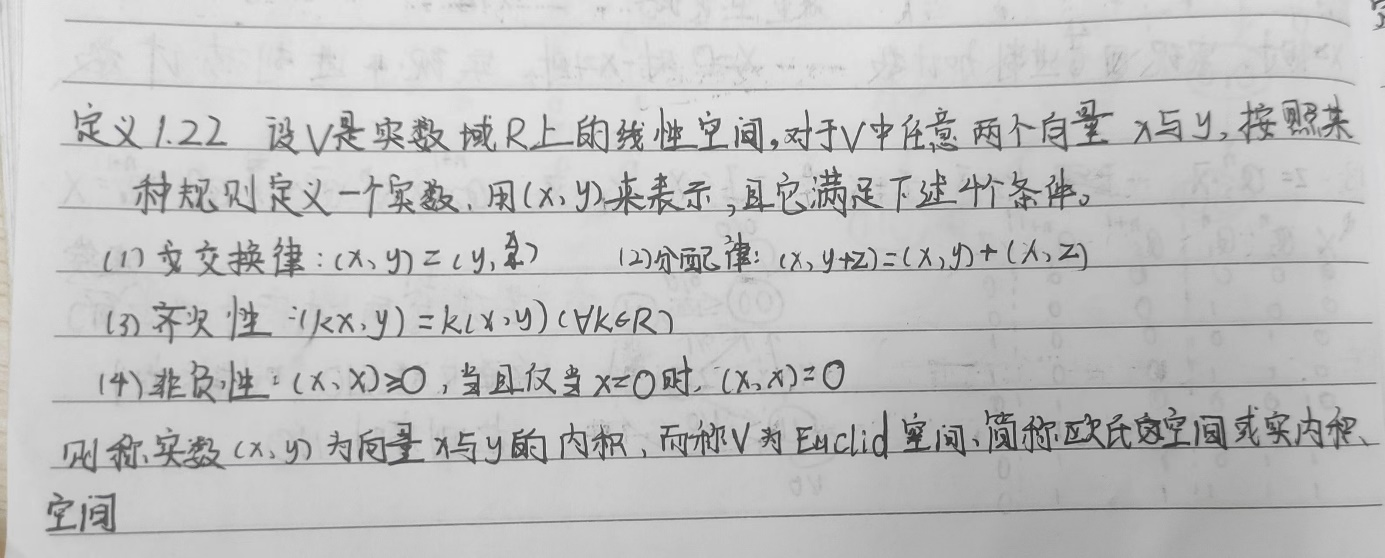 定义1.22 设V是实数域R上的线性空间,对于V中任意两个向量 x与y,按照某
种规则定义一个实数,用(x,y)来表示,且它满足下述4个条件。
(1) 交换律:(x,y)=(y,x) (2)分配律:(x,y+z)=(x,y)+(x,z)
(3)齐次性:(kx,y)=k(x,y)(∀k∈R)
(4)非负性:(x,x)≥0,当且仅当x=0时,(x,x)=0
则称实数(x,y)为向量x与y的内积,而称V为Euclid空间、简称欧氏空间或实内积
空间